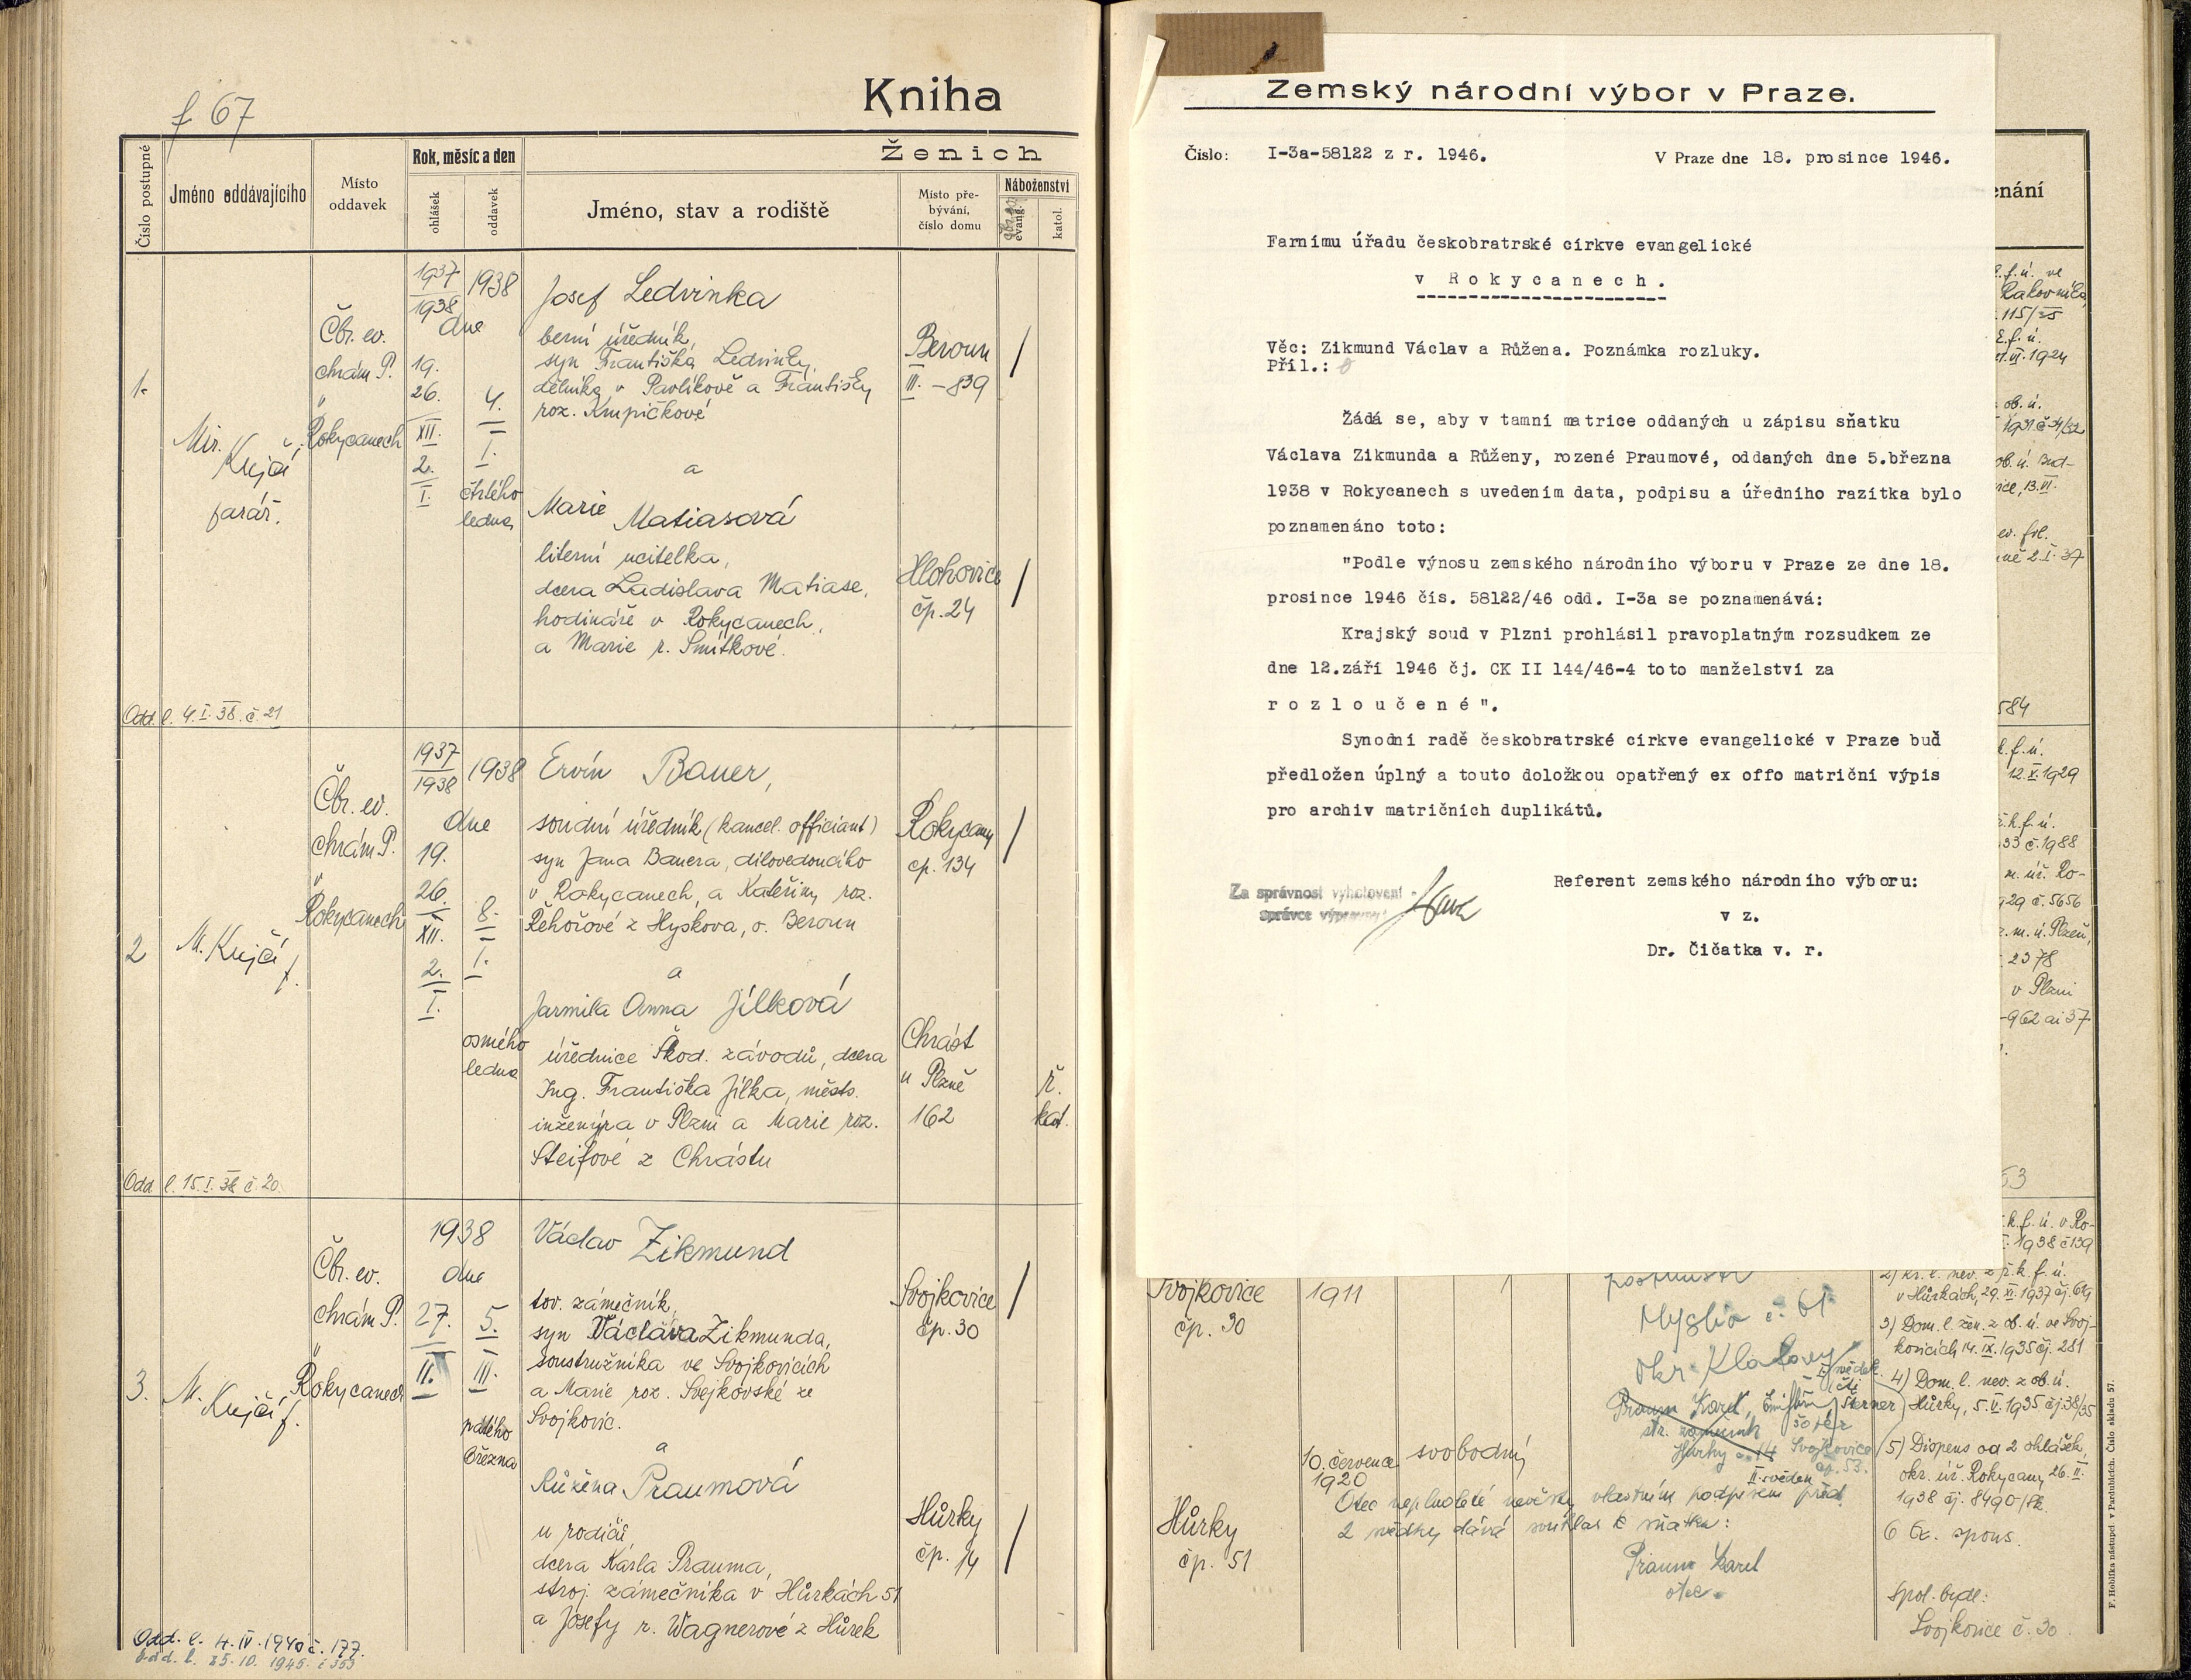 f 67
Kniha
Ženich
Číslo postupné
Jméno oddávajícího
Místo
oddavek
Rok, měsíc a den
ohlášek
oddavek
Jméno, stav a rodiště
Místo pře-
bývání,
číslo domu
Náboženství
evang.
katol.
1.
Mir. Krejčí,
farář.
Čbr. ev.
chrám P.
v
Rokycanech
1937
1938
1938
dne
19.
26.
XII.
2.
I.
4.
I.
čtvrtého
ledna
Josef Ledvinka
berní úředník,
syn Františka Ledvinky,
dělníka v Pavlíkově a Františky
roz. Krupičkové
a
Marie Matiasová
literní učitelka,
dcera Ladislava Matiase,
hodináře v Rokycanech,
a Marie r. Smítkové.
Beroun
II. – 839
Hlohovice
čp. 24
Odd. l. 4. I. 38. č. 21
2
M. Krejčí f.
Čbr. ev.
chrám P.
v
Rokycanech
1937
1938
1938
dne
19.
26.
XII.
2.
I.
8.
I.
osmého
ledna
Ervín Bauer,
soudní úředník (kancel. officiant)
syn Jana Bauera, dílovedoucího
v Rokycanech, a Kateřiny roz.
Řehořové z Hyskova, o. Beroun
a
Jarmila Anna Jílková
úřednice Škod. závodů, dcera
Ing. Františka Jílka, městs.
inženýra v Plzni a Marie roz.
Steifové z Chrástu
Rokycany
čp. 134
Chrást
u Plzně
162
ř.
kat.
Odd l. 15. I. 38 č. 20.
3.
M. Krejčí f.
Čbr. ev.
chrám P.
v
Rokycanech
1938
dne
27.
II.
5.
III.
pátého
března
Václav Zikmund
tov. zámečník,
syn Václava Zikmunda,
soustružníka ve Svojkovicích
a Marie roz. Svejkovské ze
Svojkovic.
a
Růžena Praumová
u rodičů,
dcera Karla Prauma,
stroj. zámečníka v Hůrkách 51
a Josefy r. Wagnerové z Hůrek
Svojkovice
čp. 30
Hůrky
čp. 14
Odd. l. 4. IV. 1940 č. 177.
Odd. l. 25. 10. 1945. č 353
Zemský národní výbor v Praze.
Číslo: I-3a-58122 z r. 1946.
V Praze dne 18. prosince 1946.
Farnímu úřadu českobratrské církve evangelické
v Rokycanech.
Věc: Zikmund Václav a Růžena. Poznámka rozluky.
Příl.: 0
Žádá se, aby v tamní matrice oddaných u zápisu sňatku
Václava Zikmunda a Růženy, rozené Praumové, oddaných dne 5.března
1938 v Rokycanech s uvedením data, podpisu a úředního razítka bylo
poznamenáno toto:
"Podle výnosu zemského národního výboru v Praze ze dne 18.
prosince 1946 čís. 58122/46 odd. I-3a se poznamenává:
Krajský soud v Plzni prohlásil pravoplatným rozsudkem ze
dne 12.září 1946 čj. CK II 144/46-4 toto manželství za
rozloučené".
Synodní radě českobratrské církve evangelické v Praze buď
předložen úplný a touto doložkou opatřený ex offo matriční výpis
pro archiv matričních duplikátů.
Referent zemského národního výboru:
v z.
Dr. Čičatka v. r.
Za správnost vyhotovení
správce výpravny:
enání
f. ú. ve
Rakovníka,
115/25
f. ú.
VI. 1924
ob. ú.
1931 č. 54/32
ob. ú.
13. VI.
ev. fil.
2 I. 37
584
f. ú.
12. X. 1929
k. f. ú.
33 č. 1988
m. úř. Ro-
929 č. 5656
m. ú. Plzeň,
2378
v Plzni
962 ai 37
53
k. f. ú. v Ro-
1938 č 139
2) Kr. l. nev. z ř. k. f. ú.
v Hůrkách, 29. XI. 1937 čj. 619
3) Dom. l. žen. z ob. ú. ve Svoj-
kovicích 14. IX. 1935 čj. 281
4) Dom. l. nev. z ob. ú.
Hůrky, 5. V. 1935 čj. 38/35
5) Dispens od 2 ohlášek
okr. úř. Rokycany 26. II.
1938 čj. 8490/38
6 Ex. spons.
Spol. bydl:
Svojkovice č. 30
Svojkovice
čp. 30
1911
Myslív č. 61
okr. Klatovy
Praum Karel,
Hůrky č. 14
šofér
Svojkovice
čp. 53.
II. svědek
10. července
1920
svobodný
Otec neplnoleté nevěsty vlastním podpisem před
2 svědky dává souhlas k sňatku:
Praum Karel
otec.
Hůrky
čp. 51
F. Hoblíka nástupci v Pardubicích. Číslo skladu 57.